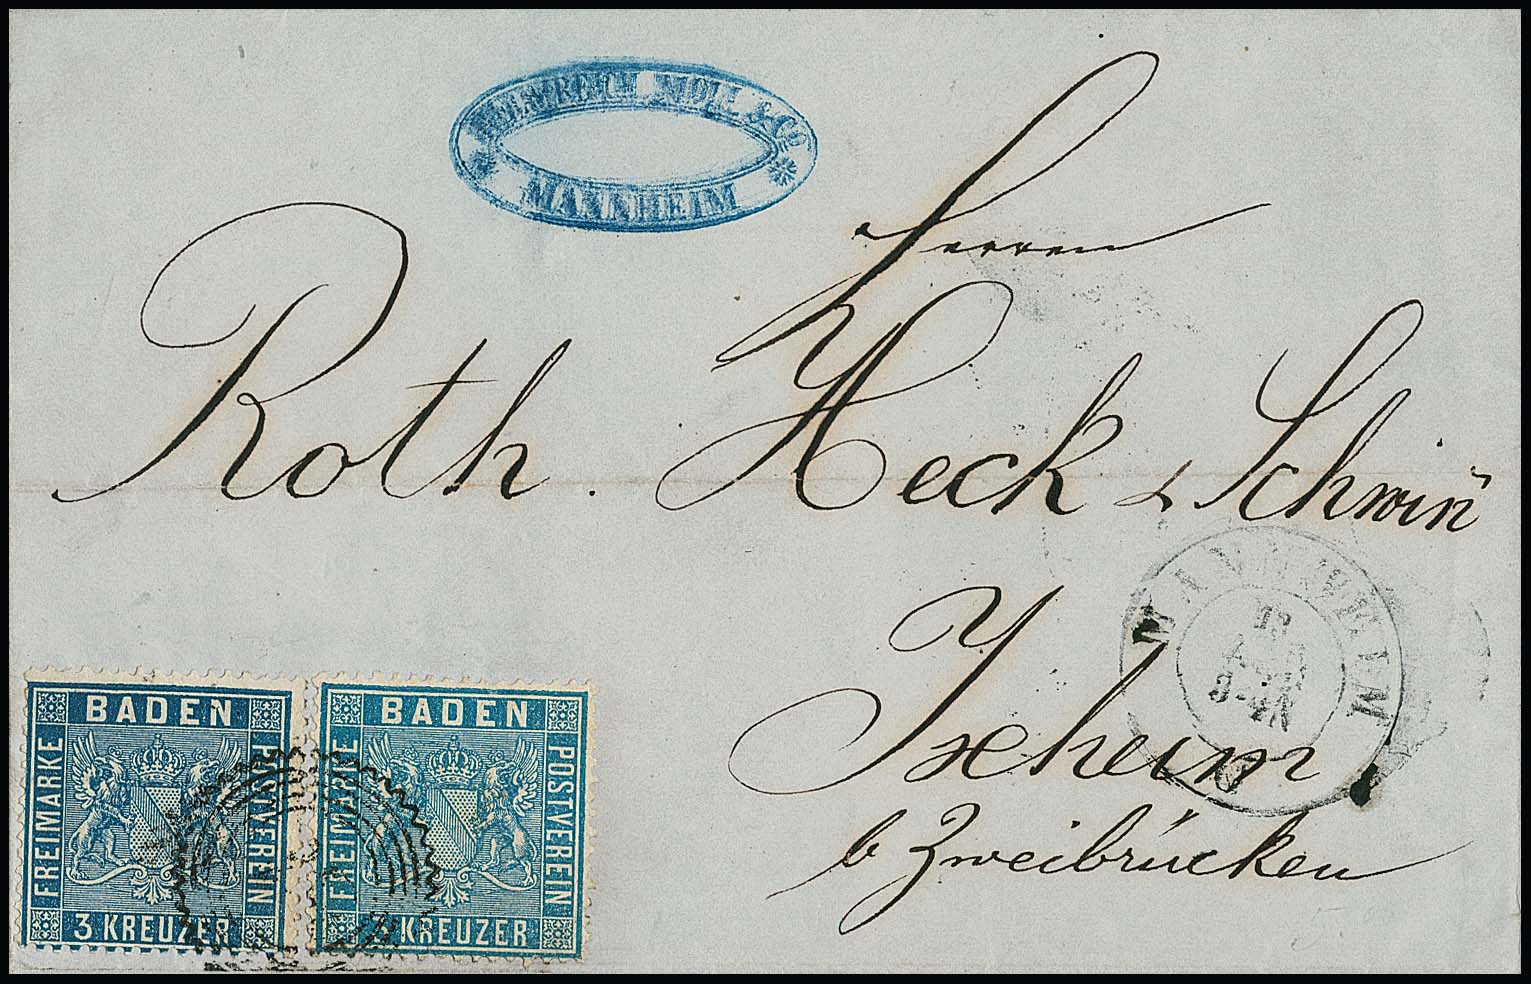 HEINRICH MOLL & CO
MANNHEIM
Herren
Roth. Heck & Schwin̄
Ixheim
b Zweibrücken
MANNHEIM
BADEN
FREIMARKE
POSTVEREIN
3 KREUZER
BADEN
FREIMARKE
POSTVEREIN
3 KREUZER